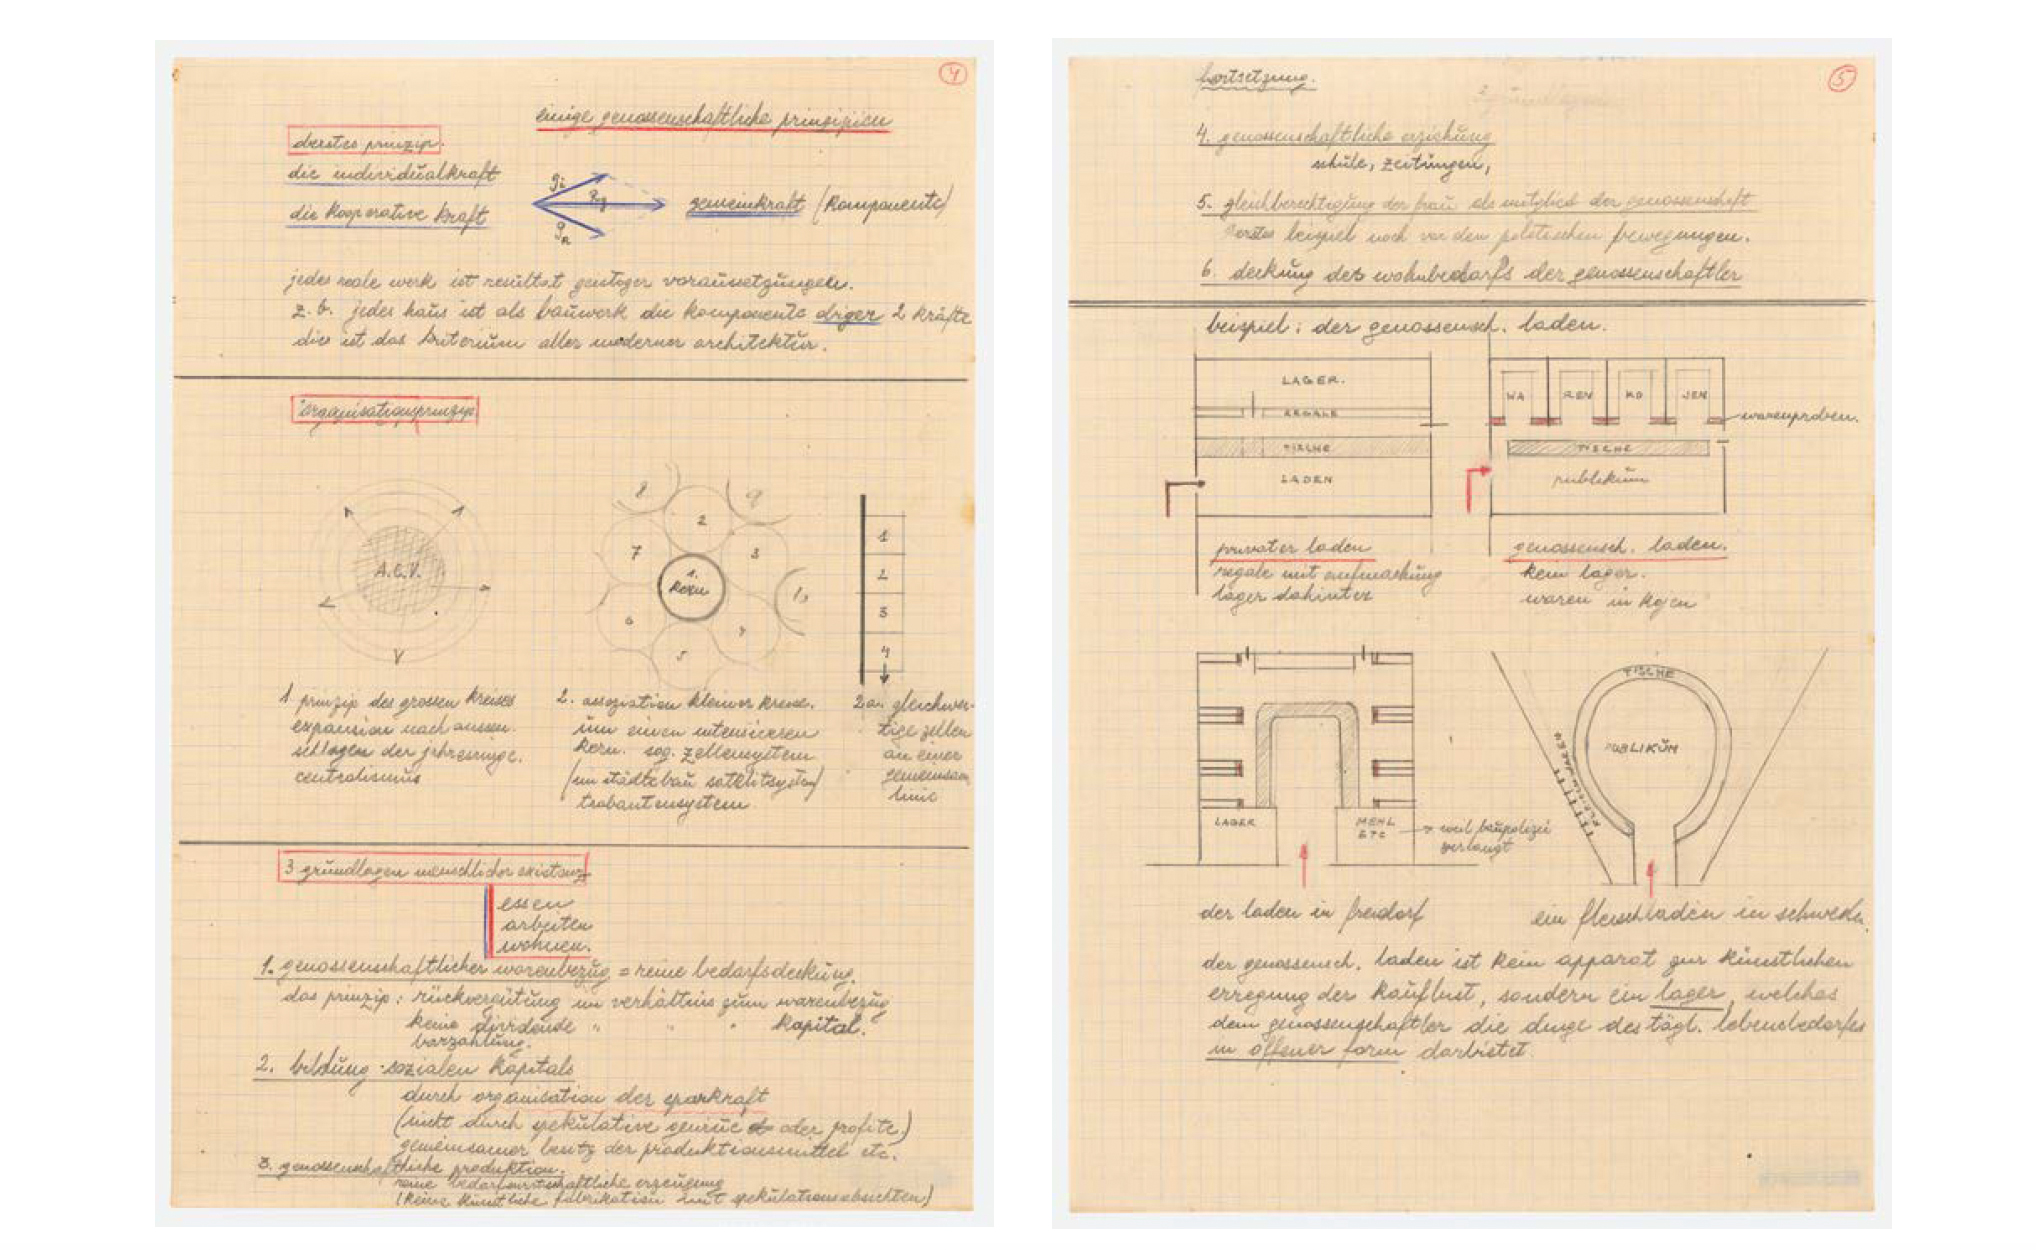 4
einige genossenschaftliche prinzipien
erstes prinzip.
die individualkraft
die kooperative kraft
gemeinkraft (komponente)
jedes reale werk ist resultat geistiger voraussetzungen.
z. b. jedes haus ist als bauwerk die komponente obiger 2 kräfte
dies ist das kriterium aller moderner architektur.
organisationsprinzip
A.C.V.
8
9
2
7
3
1.
kern
6
5
1
2
3
4
1. prinzip des grossen kreises
expansion nach aussen.
der jahresringe.
centralismus
2. assoziation kleiner kreise.
um einen intensiveren
kern. sog. zellensystem
(im städtebau satelitsystem)
trabantensystem
2a. gleichwer-
tige zellen
an einer
gemeinsam
linie
3 grundlagen menschlicher existenz
essen
arbeiten
wohnen.
1. genossenschaftlicher warenbezug = reine bedarfsdeckung.
das prinzip: rückvergütung im verhältnis zum warenbezug
keine dividende " " " kapital.
barzahlung.
2. bildung sozialen kapitals
durch organisation der sparkraft
(nicht durch spekulative gewinne oder profite.)
gemeinsamer besitz der produktionsmittel etc.
3. genossenschaftliche produktion.
reine bedarfswirtschaftliche erzeugung
(keine künstliche fabrikation mit spekulationsabsichten)
fortsetzung.
5
4. genossenschaftliche erziehung
schule, zeitungen,
5. gleichberechtigung der frau als mitglied der genossenschaft
erstes beispiel noch vor den politischen bewegungen.
6. deckung des wohnbedarfs der genossenschaftler
beispiel: der genossensch. laden.
LAGER.
REGALE
TISCHE
LADEN
WA REN KO JEN
warenproben.
TISCHE
publikum
privater laden
regale mit aufmachung
lager dahinter
genossensch. laden.
kein lager.
waren in kojen
LAGER
MEHL
ETC
weil baupolizei
verlangt
TISCHE
PUBLIKUM
der laden in freidorf
ein fleischladen in schweden.
der genossensch. laden ist kein apparat zur künstlichen
erregung der kauflust, sondern ein lager, welches
dem genossenschaftler die dinge des tägl. lebensbedarfes
in offener form darbietet.